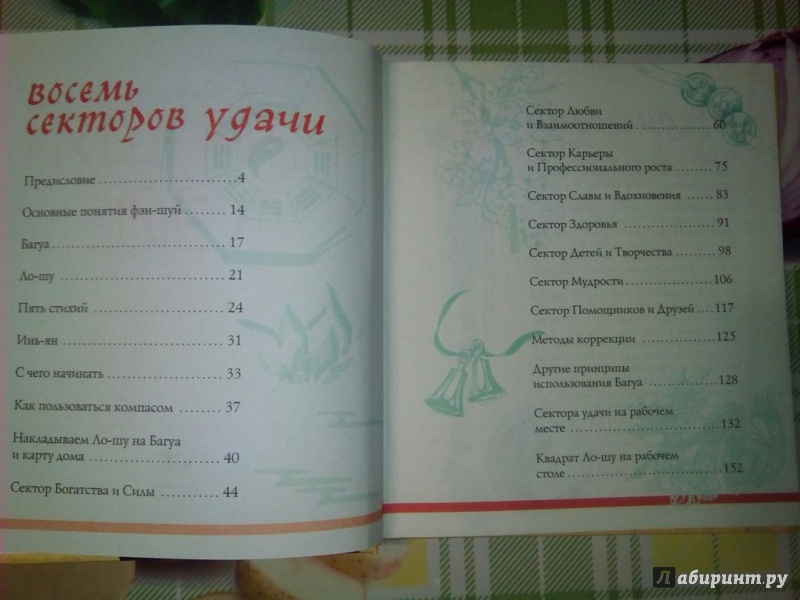 восемь
секторов удачи
Предисловие ..............................4
Основные понятия фэн-шуй ........ 14
Багуа ................................... 17
Ло-шу ................................... 21
Пять стихий ............................ 24
Инь-ян .................................. 31
С чего начинать ....................... 33
Как пользоваться компасом ......... 37
Накладываем Ло-шу на Багуа
и карту дома ........................... 40
Сектор Богатства и Силы ............. 44
Сектор Любви
и Взаимоотношений ................... 60
Сектор Карьеры
и Профессионального роста .......... 75
Сектор Славы и Вдохновения ....... 83
Сектор Здоровья ...................... 91
Сектор Детей и Творчества .......... 98
Сектор Мудрости ..................... 106
Сектор Помощников и Друзей .....117
Методы коррекции ................... 125
Другие принципы
использования Багуа ................. 128
Сектора удачи на рабочем
месте .................................. 132
Квадрат Ло-шу на рабочем
столе .................................. 152
Лабиринт.ру